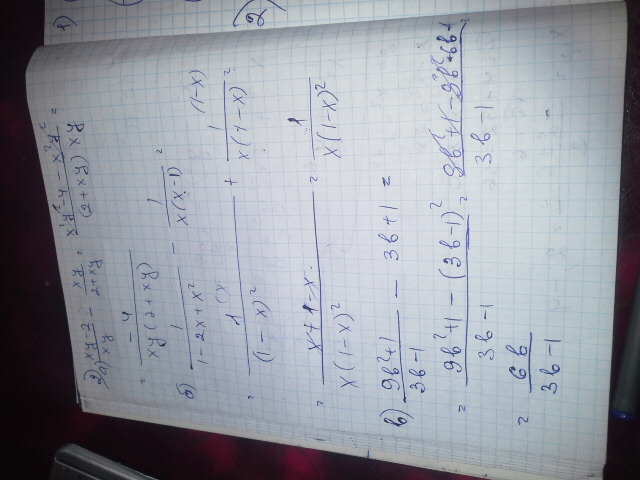 2) a) (xy-2)/(xy) - (xy)/(2+xy) = (x²y²-4-x²y²)/((2+xy)xy) =
= (-4)/(xy(2+xy))
б) 1/(1-2x+x²) - 1/(x(x-1)) =
= 1/(1-x)² + 1/(x(1-x)) =
= (x+1-x)/(x(1-x)²) = 1/(x(1-x)²)
в) (9b²+1)/(3b-1) - 3b+1 =
= (9b²+1-(3b-1)²)/(3b-1) = (9b²+1-9b²+6b-1)/(3b-1)
= 6b/(3b-1)
1)
2)